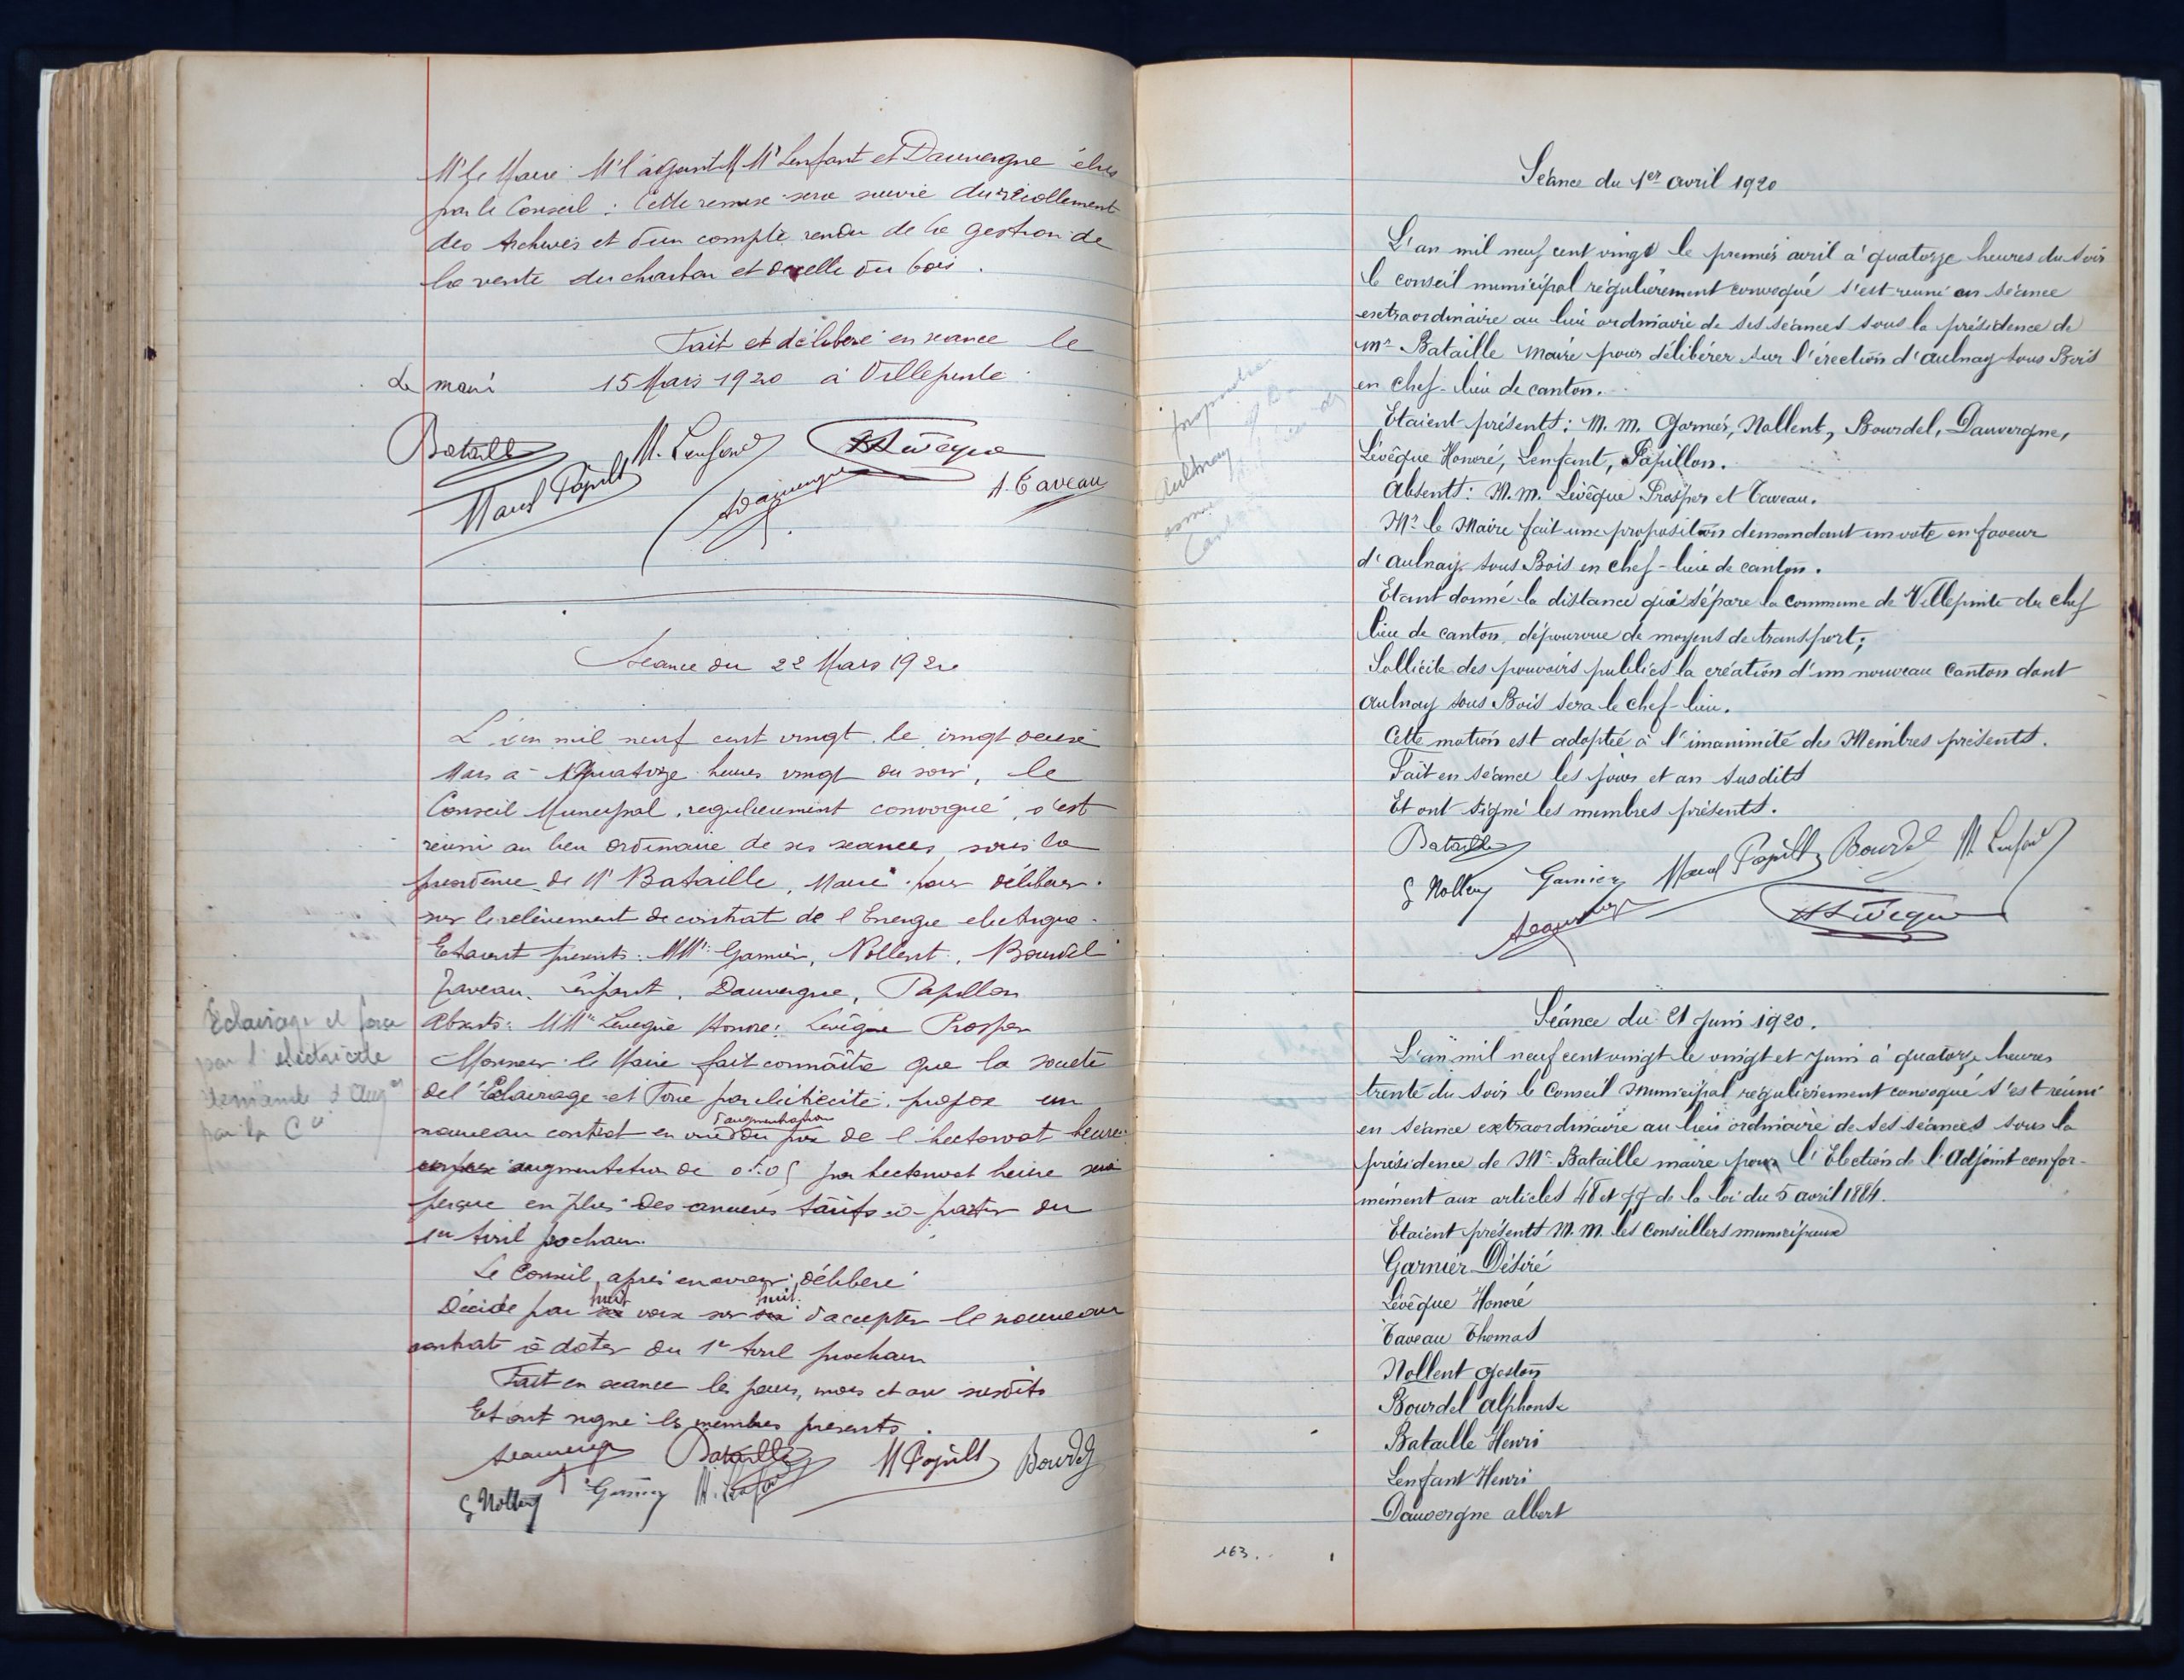 Mr le Maire Mr l'adjoint M Mrs Lenfant et Dauvergne élus
par le Conseil : Cette remise sera suivie du récollement
des Archives et d'un compte rendu de la gestion de
la vente du charbon et de celle du bois.
Fait et délibéré en séance le
Le maire 15 Mars 1920 à Villepinte
Bataille M. Lenfant HLévêque
Marcel Papillon Dauvergne A. Taveau
Séance du 22 Mars 1920
L'an mil neuf cent vingt le vingt deux
Mars à quatorze heures vingt du soir, le
Conseil Municipal, regulierement convoqué, s'est
réuni au lieu ordinaire de ses seances sous la
presidence de Mr Bataille, Maire pour délibérer
sur le relèvement de contrat de l'Energie electrique.
Etaient présents : MMrs Garnier, Nollent, Bourdel
Taveau, enfant, Dauvergne, Papillon
Absents : MMrs Leveque Honoré, Levêque Prosper
Eclairage et force
par l'électricité
demande d'augon
par la Cie
Monsieur le Maire fait connaître que la société
del'Eclairage et Force par électricité, propose un
nouveau contrat en vue d'augmentation du prix de l'hectowat heure
augmentation de 0f.05 par hectowat heure sera
perçue en plus des anciens tarifs à partir du
1er Avril prochain.
Le Conseil, après en avoir délibéré
Décide par huit voix sur huit d'accepter le nouveau
contrat à dater du 1er Avril prochain
Fait en seance les jours, mois et an susdits
Et ont signé les membres présents.
Dauvergne Bataille M Papillon Bourdel
G Nollent Garnier M. Lenfant
Séance du 1er avril 1920
L'an mil neuf cent vingt le premier avril à quatorze heures du soir
le conseil municipal régulièrement convoqué s'est reuni en séance
extraordinaire au lieu ordinaire de ses séances sous la présidence de
Mr Bataille Maire pour délibérer sur l'érection d'aulnay sous Bois
en chef-lieu de canton.
proposition
Aulnay
comme
Canton
Etaient présents : M. M. Garnier, Nollent, Bourdel, Dauvergne,
Lévêque Honoré, Lenfant, Papillon.
Absents : M. M. Lévêque Prosper et Taveau.
Mr le Maire fait une proposition demandant un vote en faveur
d'aulnay sous Bois en chef-lieu de canton.
Etant donné la distance qui sépare la commune de Villepinte du chef
lieu de canton, dépourvue de moyens de transport ;
Sollicite des pouvoirs publics la création d'un nouveau Canton dont
aulnay sous Bois sera le chef-lieu.
Cette motion est adoptée à l'unanimité des Membres présents.
Fait en séance les jours et an susdits
Et ont signé les membres présents.
Bataille Marcel Papillon Bourdel M. Lenfant
G Nollent Garnier
Dauvergne HLévêque
Séance du 21 Juin 1920.
L'an mil neuf cent vingt le vingt et juin à quatorze heures
trente du soir le Conseil Municipal régulièrement convoqué s'est réuni
en séance extraordinaire au lieu ordinaire de ses séances sous la
présidence de Mr Bataille maire pour l'Election de l'Adjoint confor-
mément aux articles 48 et 77 de la loi du 5 avril 1884.
Etaient présents M. M. les Conseillers municipaux
Garnier Désiré
Lévêque Honoré
Taveau Thomas
Nollent Gaston
Bourdel Alphonse
Bataille Henri
Lenfant Henri
Dauvergne albert
163.